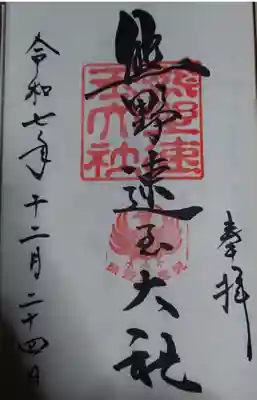 奉拝
熊野速玉大社
熊野速玉大社
令和七年十二月二十四日